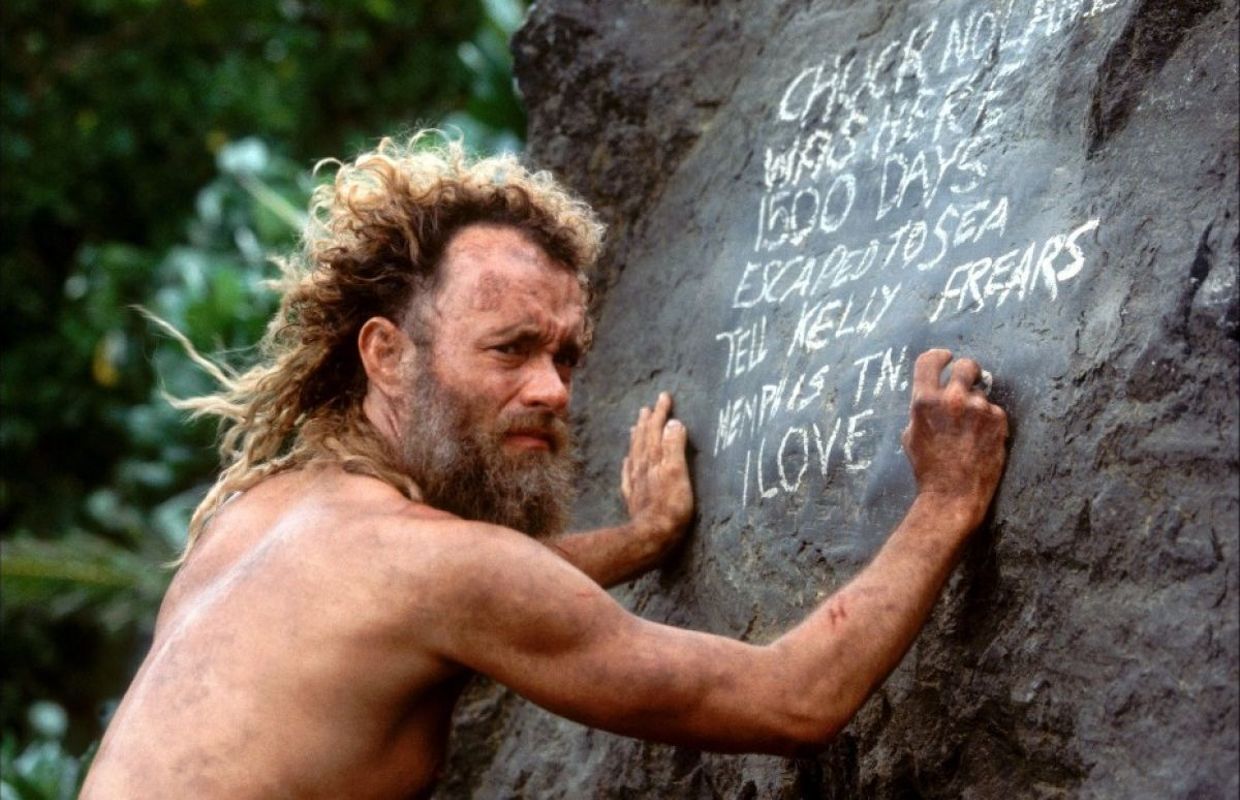 CHUCK NOLAND
WAS HERE
1500 DAYS
ESCAPED TO SEA
TELL KELLY FREARS
MEMPHIS TN.
I LOVE